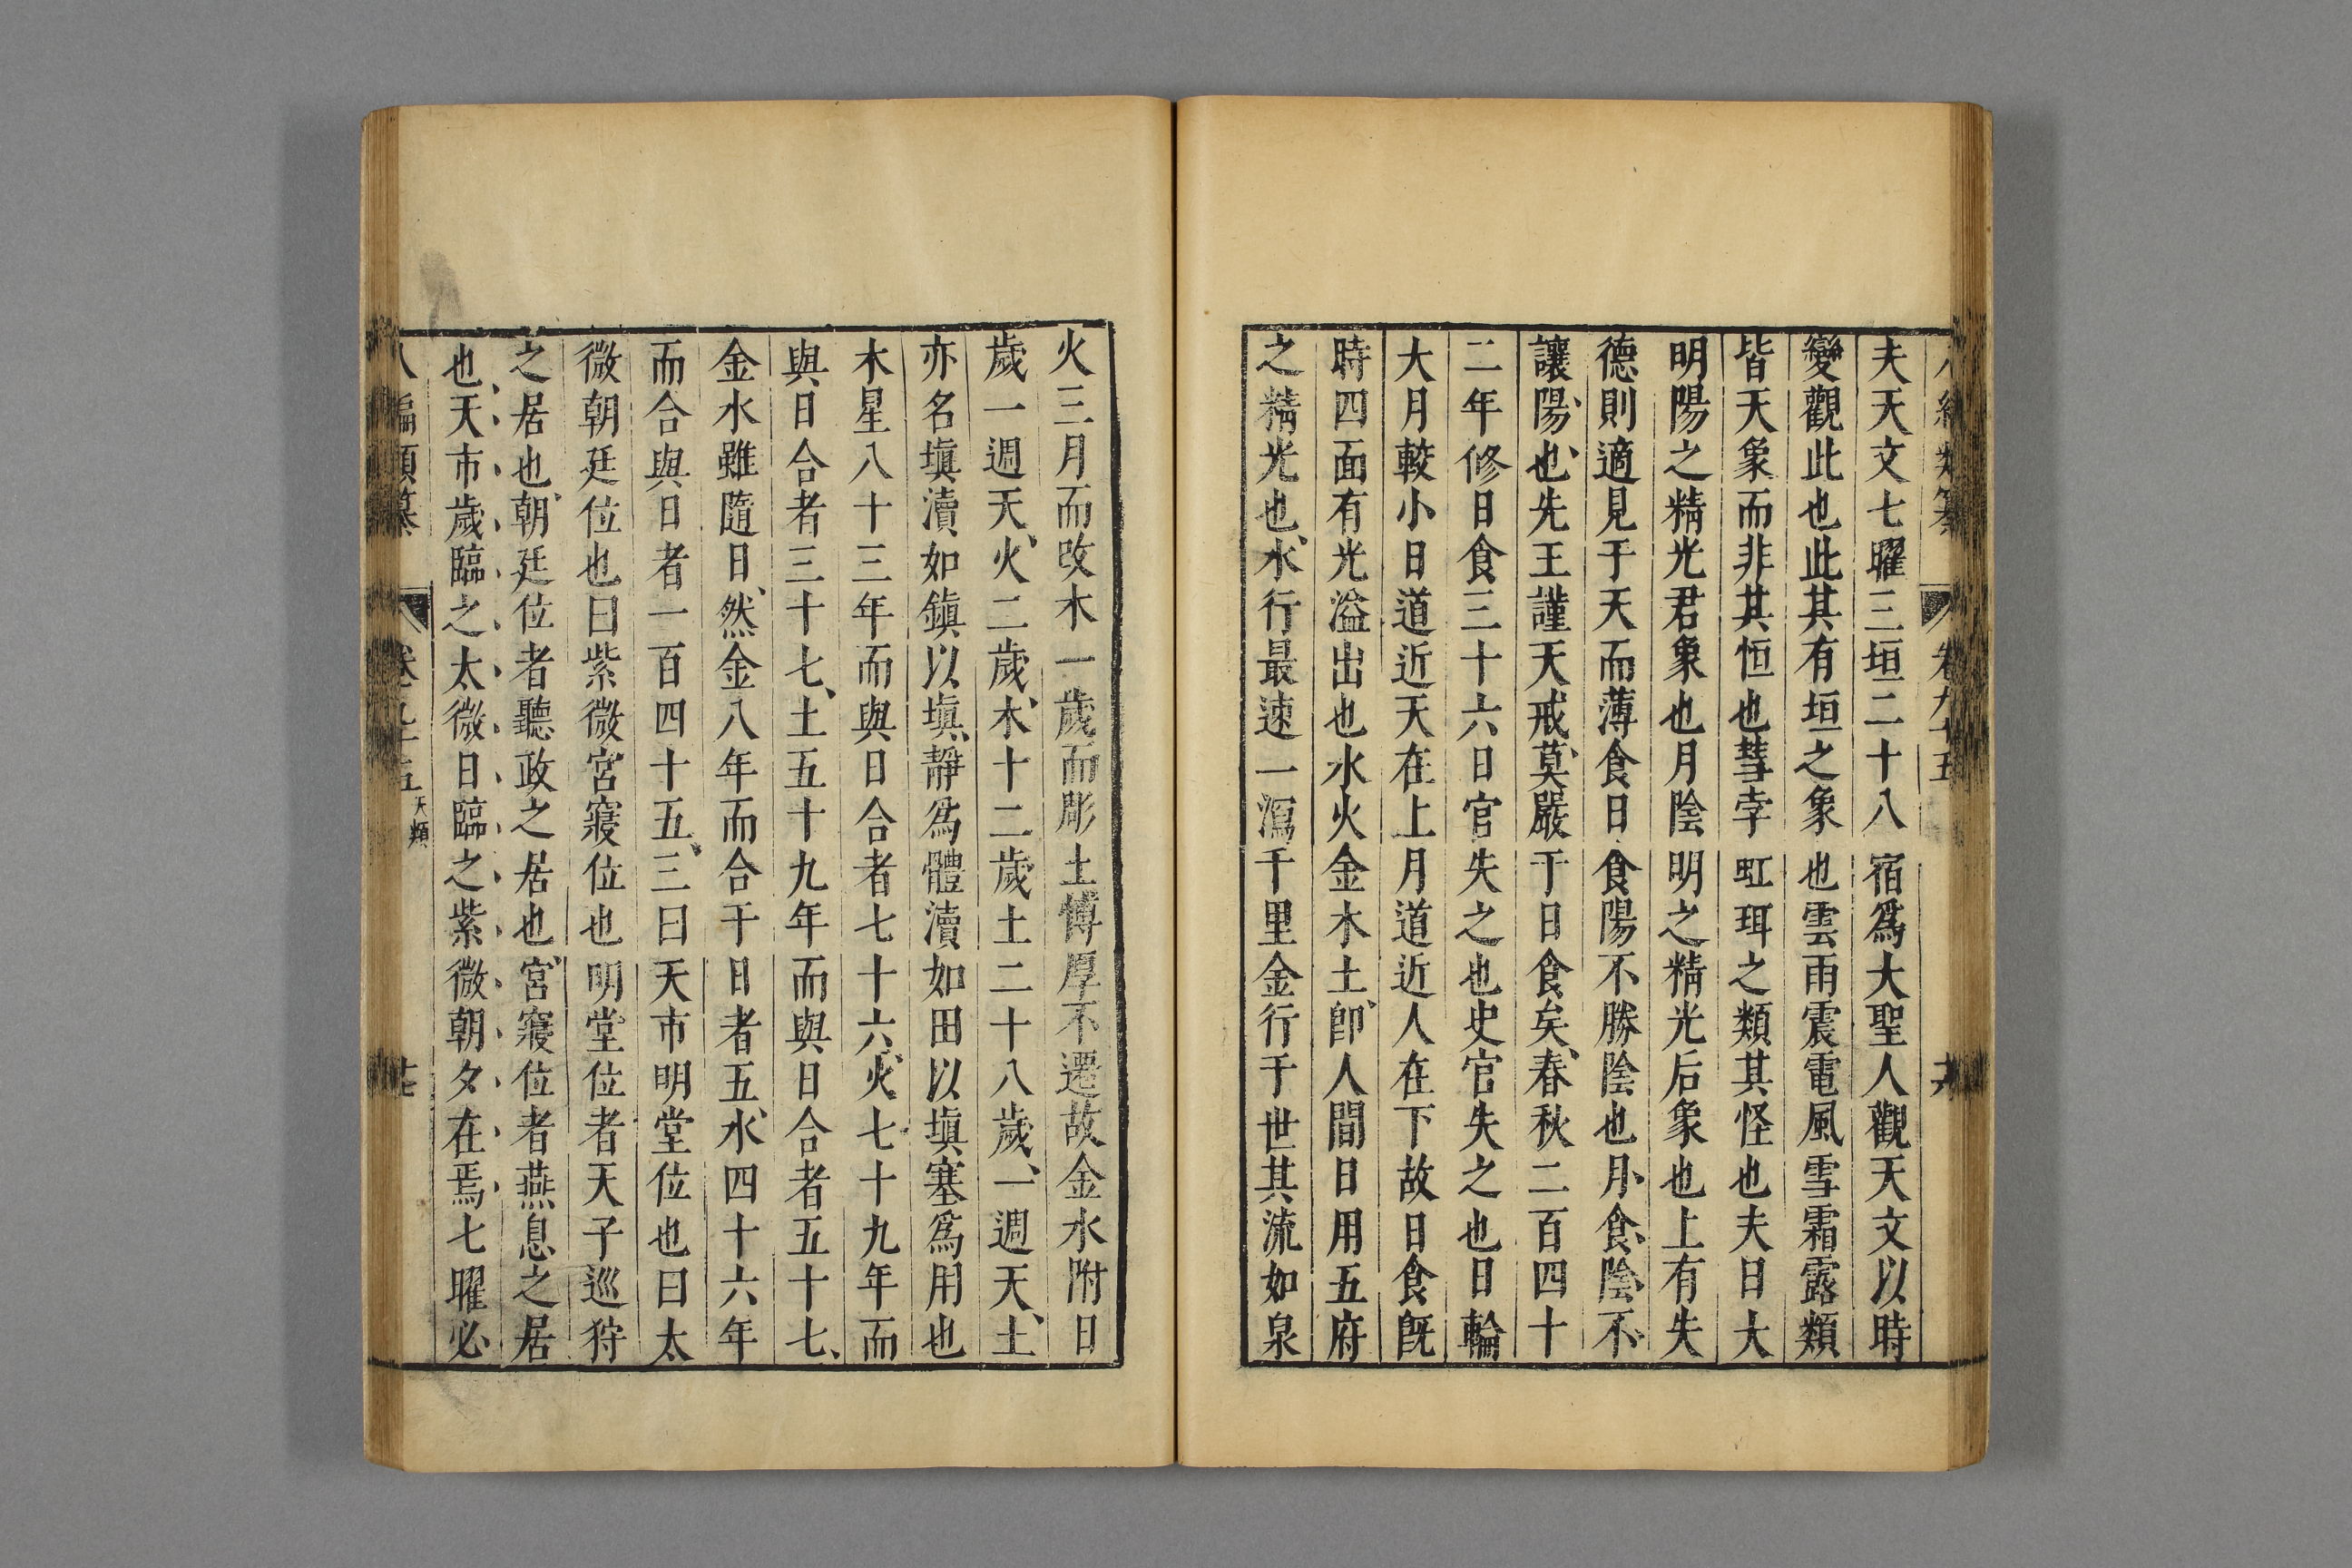 八編類纂 卷九十五 十六
夫天文七曜三垣二十八宿爲大聖人觀天文以時
變觀此也此其有垣之象也雲雨震電風雪霜露類
皆天象而非其恒也彗孛虹珥之類其怪也夫日大
明陽之精光君象也月陰明之精光后象也上有失
德則適見于天而薄食日食陽不勝陰也月食陰不
讓陽也先王謹天戒莫嚴于日食矣春秋二百四十
二年修日食三十六日官失之也史官失之也日輪
大月較小日道近天在上月道近人在下故日食旣
時四面有光溢出也水火金木土卽人間日用五府
之精光也水行最速一瀉千里金行于世其流如泉
火三月而改木一歲而彫土博厚不遷故金水附日
歲一週天火二歲木十二歲土二十八歲一週天土
亦名塡瀆如鎭以塡靜爲體瀆如田以塡塞爲用也
木星八十三年而與日合者七十六火七十九年而
與日合者三十七土五十九年而與日合者五十七
金水雖隨日然金八年而合于日者五水四十六年
而合與日者一百四十五三曰天市明堂位也曰太
微朝廷位也曰紫微宮寢位也明堂位者天子巡狩
之居也朝廷位者聽政之居也宮寢位者燕息之居
也天市歲臨之太微日臨之紫微朝夕在焉七曜必
八編類纂 卷九十五 天類 十七